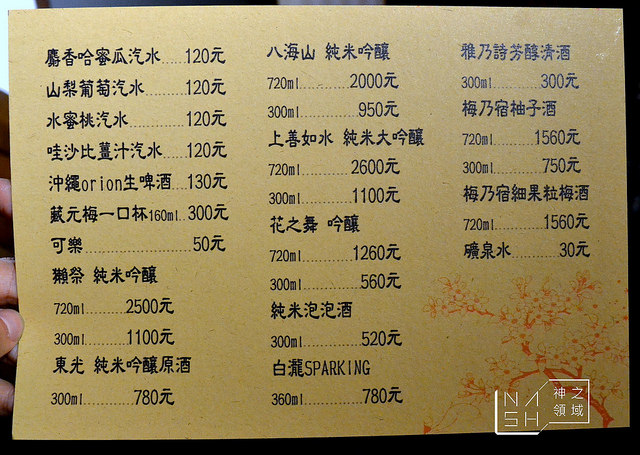 麝香哈蜜瓜汽水.....120元
山梨葡萄汽水.........120元
水蜜桃汽水............120元
哇沙比薑汁汽水...120元
沖繩orion生啤酒...130元
藏元梅一口杯160ml..300元
可樂........................50元
獺祭 純米吟釀
720ml.........2500元
300ml.........1100元
東光 純米吟釀原酒
300ml..........780元
八海山 純米吟釀
720ml..........2000元
300ml............950元
上善如水 純米大吟釀
720ml..........2600元
300ml..........1100元
花之舞 吟釀
720ml..........1260元
300ml............560元
純米泡泡酒
300ml............520元
白瀧SPARKING
360ml............780元
雅乃詩芳醇清酒
300ml..........300元
梅乃宿柚子酒
720ml........1560元
300ml..........750元
梅乃宿細果粒梅酒
720ml........1560元
礦泉水..........30元
NASH
神之領域